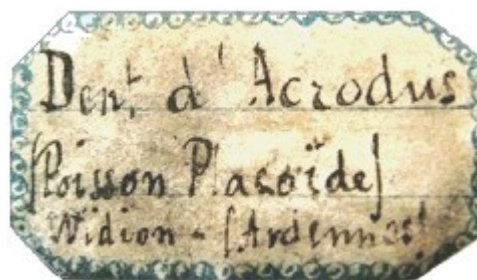 Dent d'Acrodus
[Poisson Placoïde]
Widion - [Ardennes]